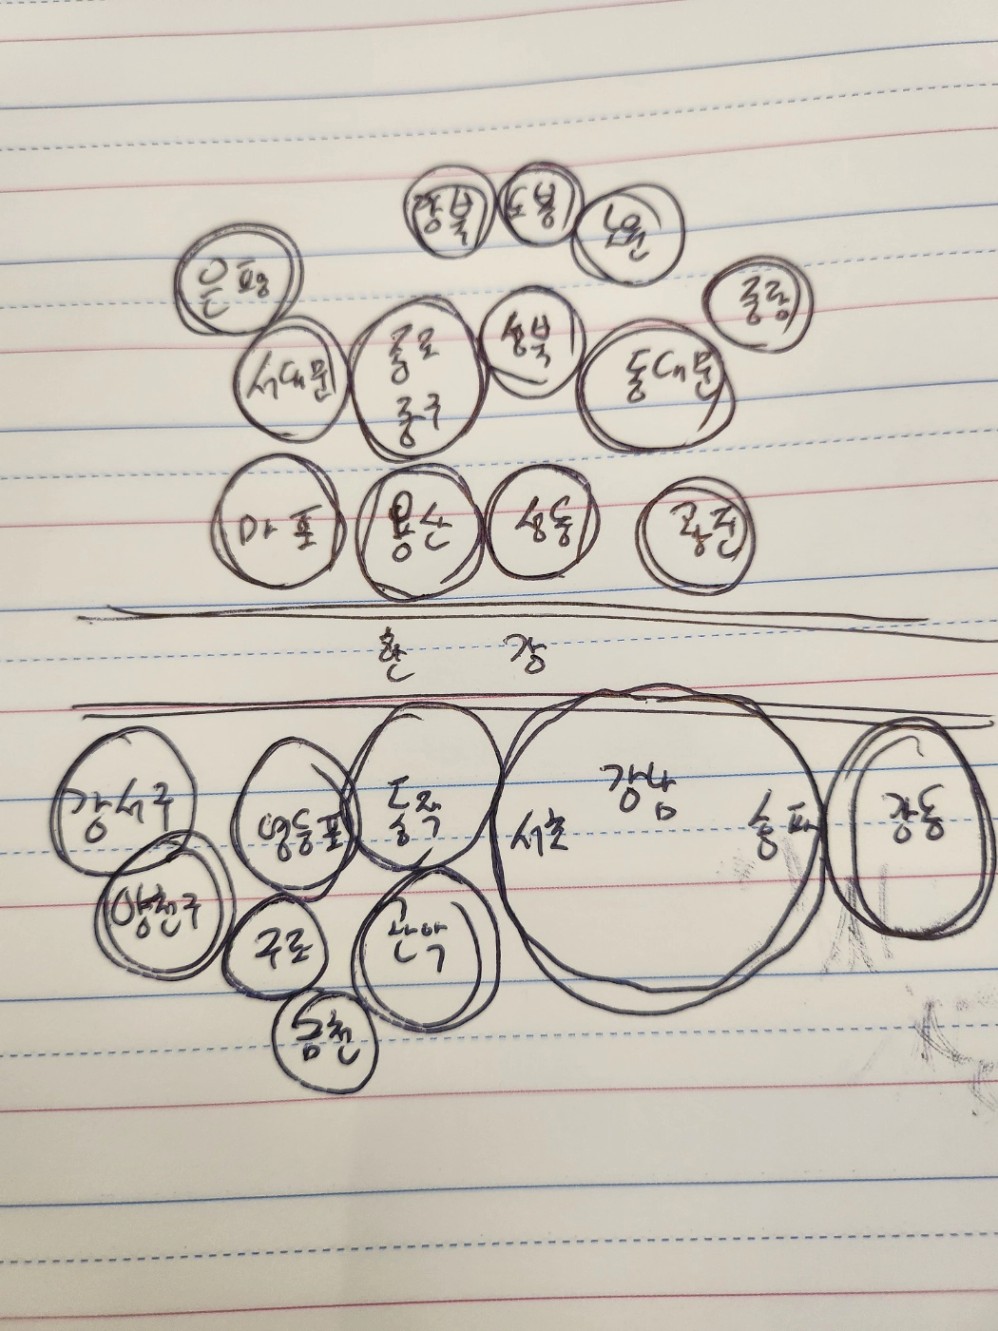 강북 도봉 노원
은평 중랑
서대문 종로 성북 동대문
중구
마포 용산 성동 광진
한 강
강서구 영등포 동작 서초 강남 송파 강동
양천구 구로 관악
금천